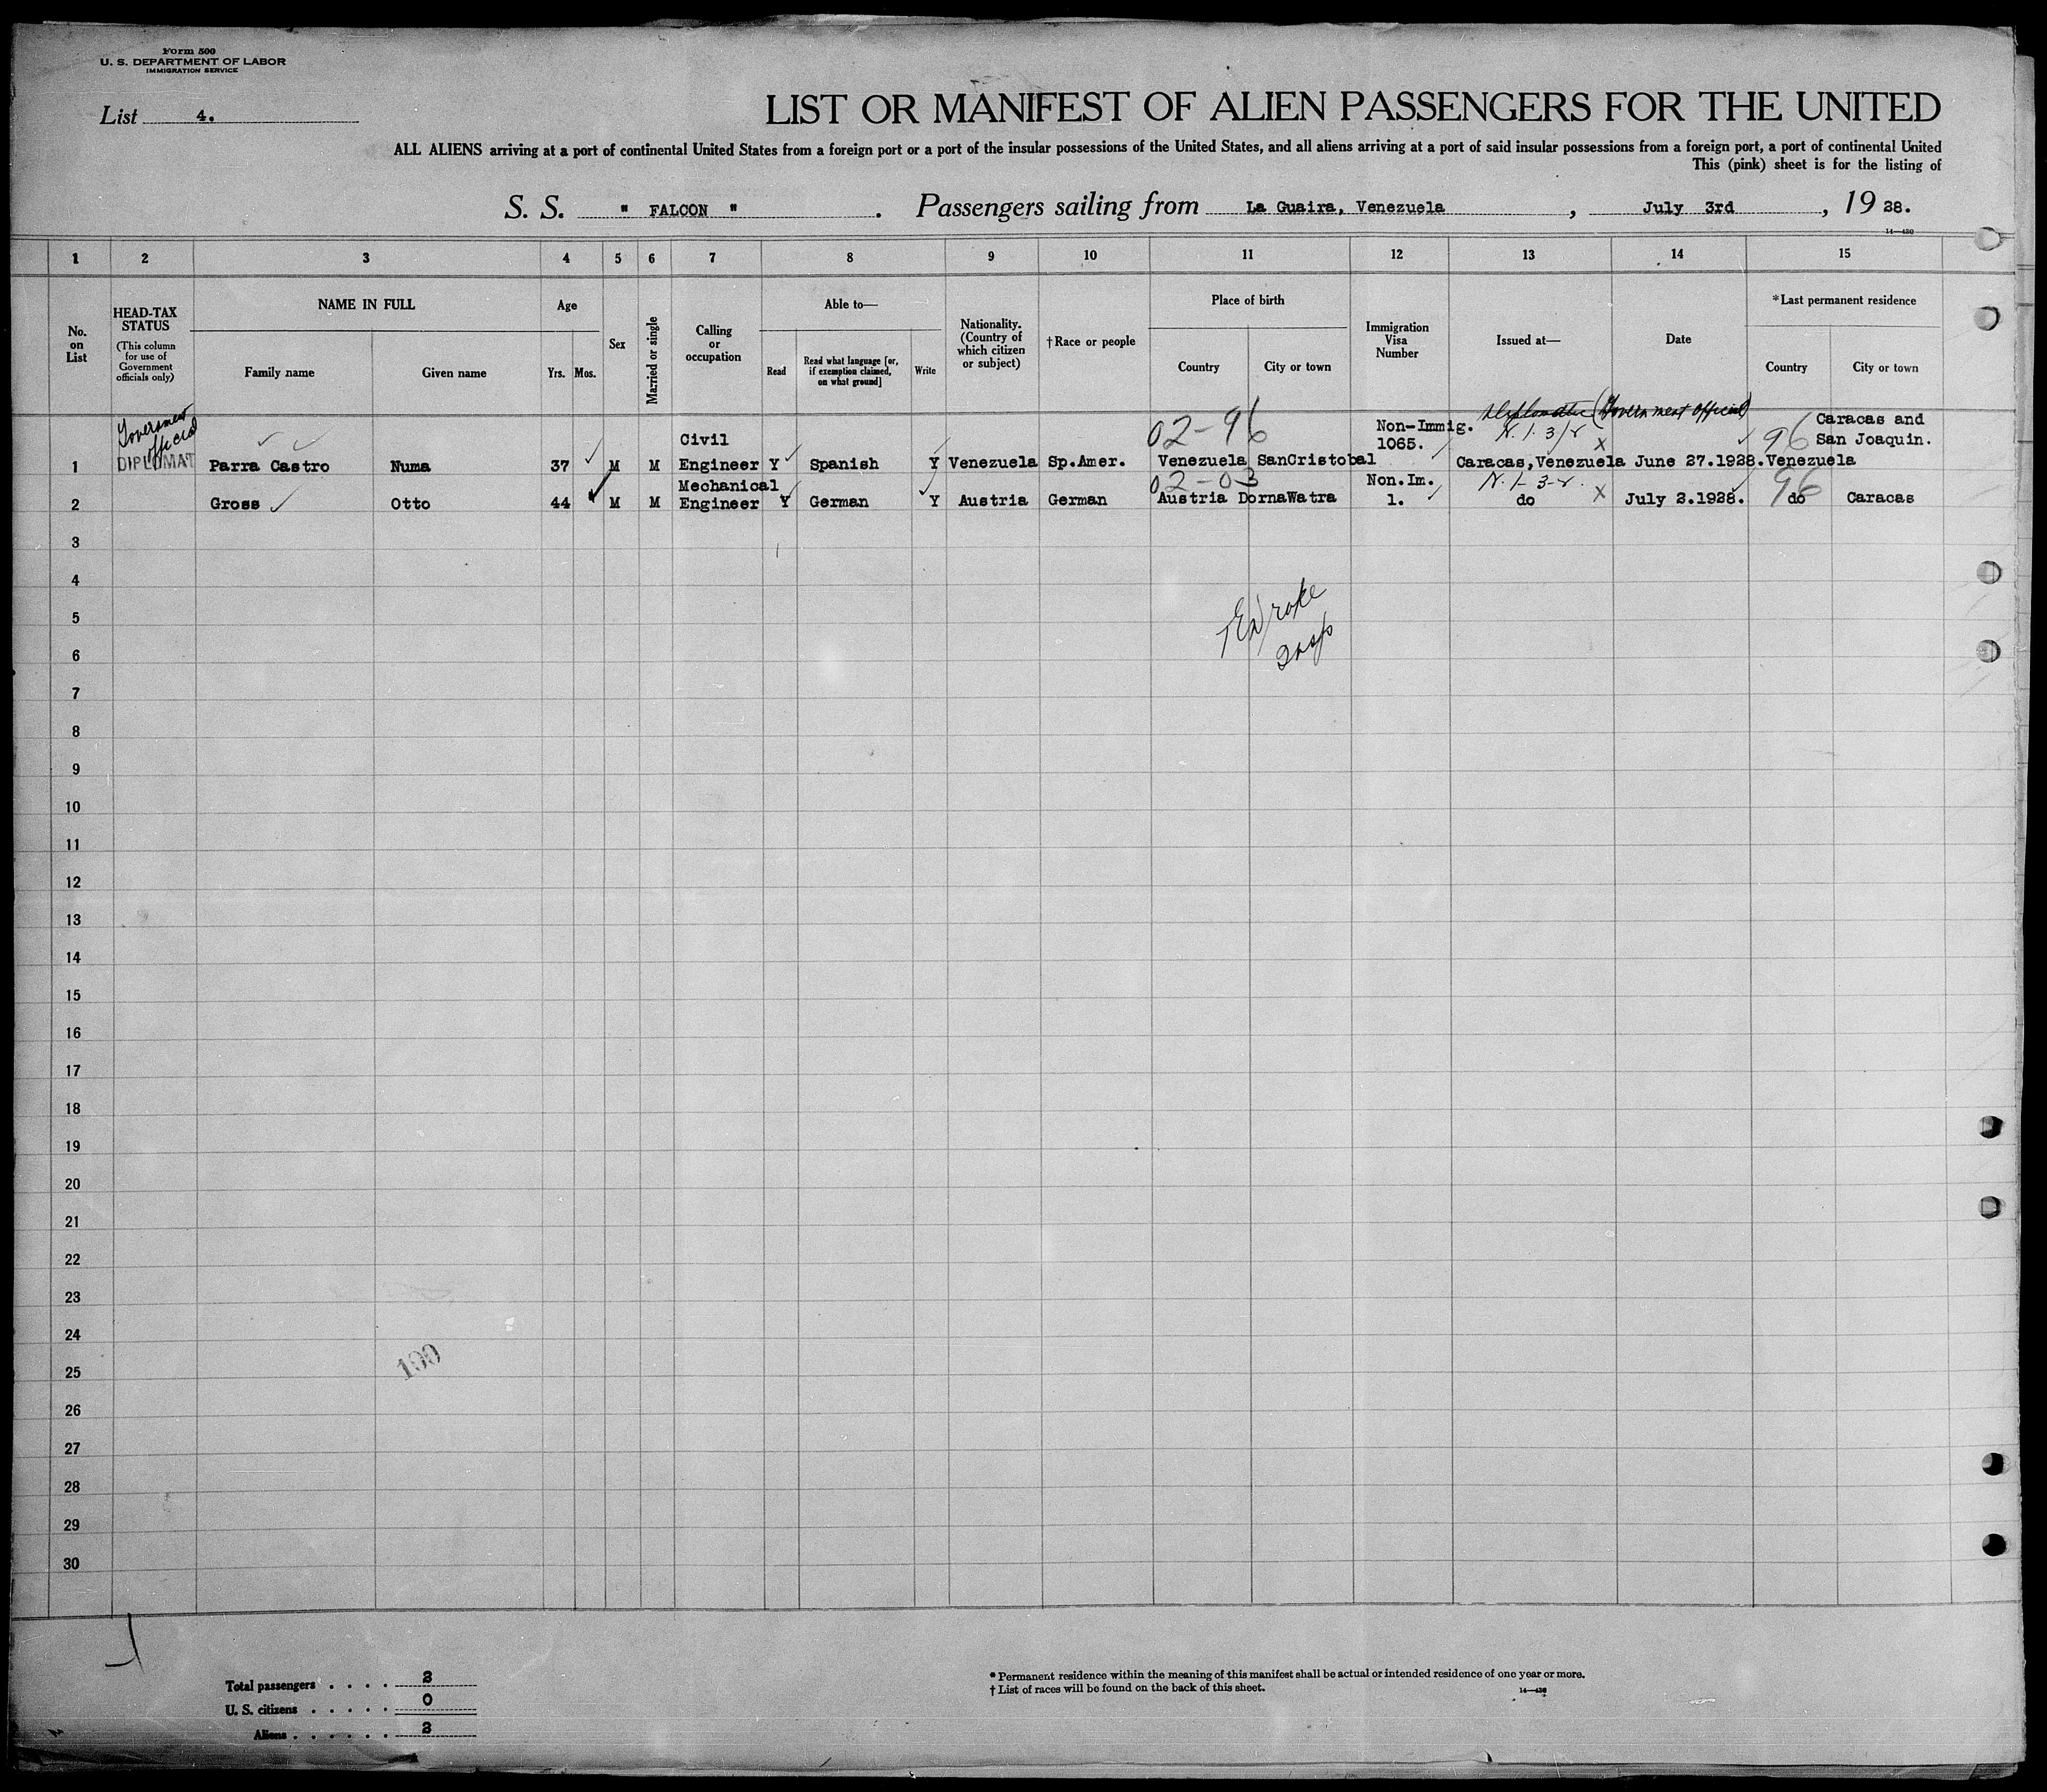 Form 500
U. S. DEPARTMENT OF LABOR
IMMIGRATION SERVICE
List 4.
LIST OR MANIFEST OF ALIEN PASSENGERS FOR THE UNITED
ALL ALIENS arriving at a port of continental United States from a foreign port or a port of the insular possessions of the United States, and all aliens arriving at a port of said insular possessions from a foreign port, a port of continental United
This (pink) sheet is for the listing of
S. S. " FALCON " . Passengers sailing from La Guaira, Venezuela , July 3rd , 19 28.
14—430
1 2 3 4 5 6 7 8 9 10 11 12 13 14 15
No. on List
HEAD-TAX STATUS
(This column for use of Government officials only)
NAME IN FULL
Family name Given name
Age
Yrs. Mos.
Sex
Married or single
Calling or occupation
Able to—
Read
Read what language [or, if exemption claimed, on what ground]
Write
Nationality. (Country of which citizen or subject)
†Race or people
Place of birth
Country City or town
Immigration Visa Number
Issued at—
Date
*Last permanent residence
Country City or town
Government official
DIPLOMAT
02-96
Diplomatic (Government Official)
N. 1. 3/r
96
1 Parra Castro Numa 37 M M Civil Engineer Y Spanish Y Venezuela Sp.Amer. Venezuela SanCristobal Non-Immig. 1065. Caracas,Venezuela June 27.1928. Venezuela Caracas and San Joaquin.
02-03
N. 1-3-r.
96
2 Gross Otto 44 M M Mechanical Engineer Y German Y Austria German Austria DornaWatra Non.Im. 1. do July 2.1928. do Caracas
3
4
5
6
7
8
9
10
11
12
13
14
15
16
17
18
19
20
21
22
23
24
25
26
27
28
29
30
Insp
100
Total passengers . . . . 2
U. S. citizens . . . . . 0
Aliens . . . . . . 2
* Permanent residence within the meaning of this manifest shall be actual or intended residence of one year or more.
† List of races will be found on the back of this sheet.
14—430